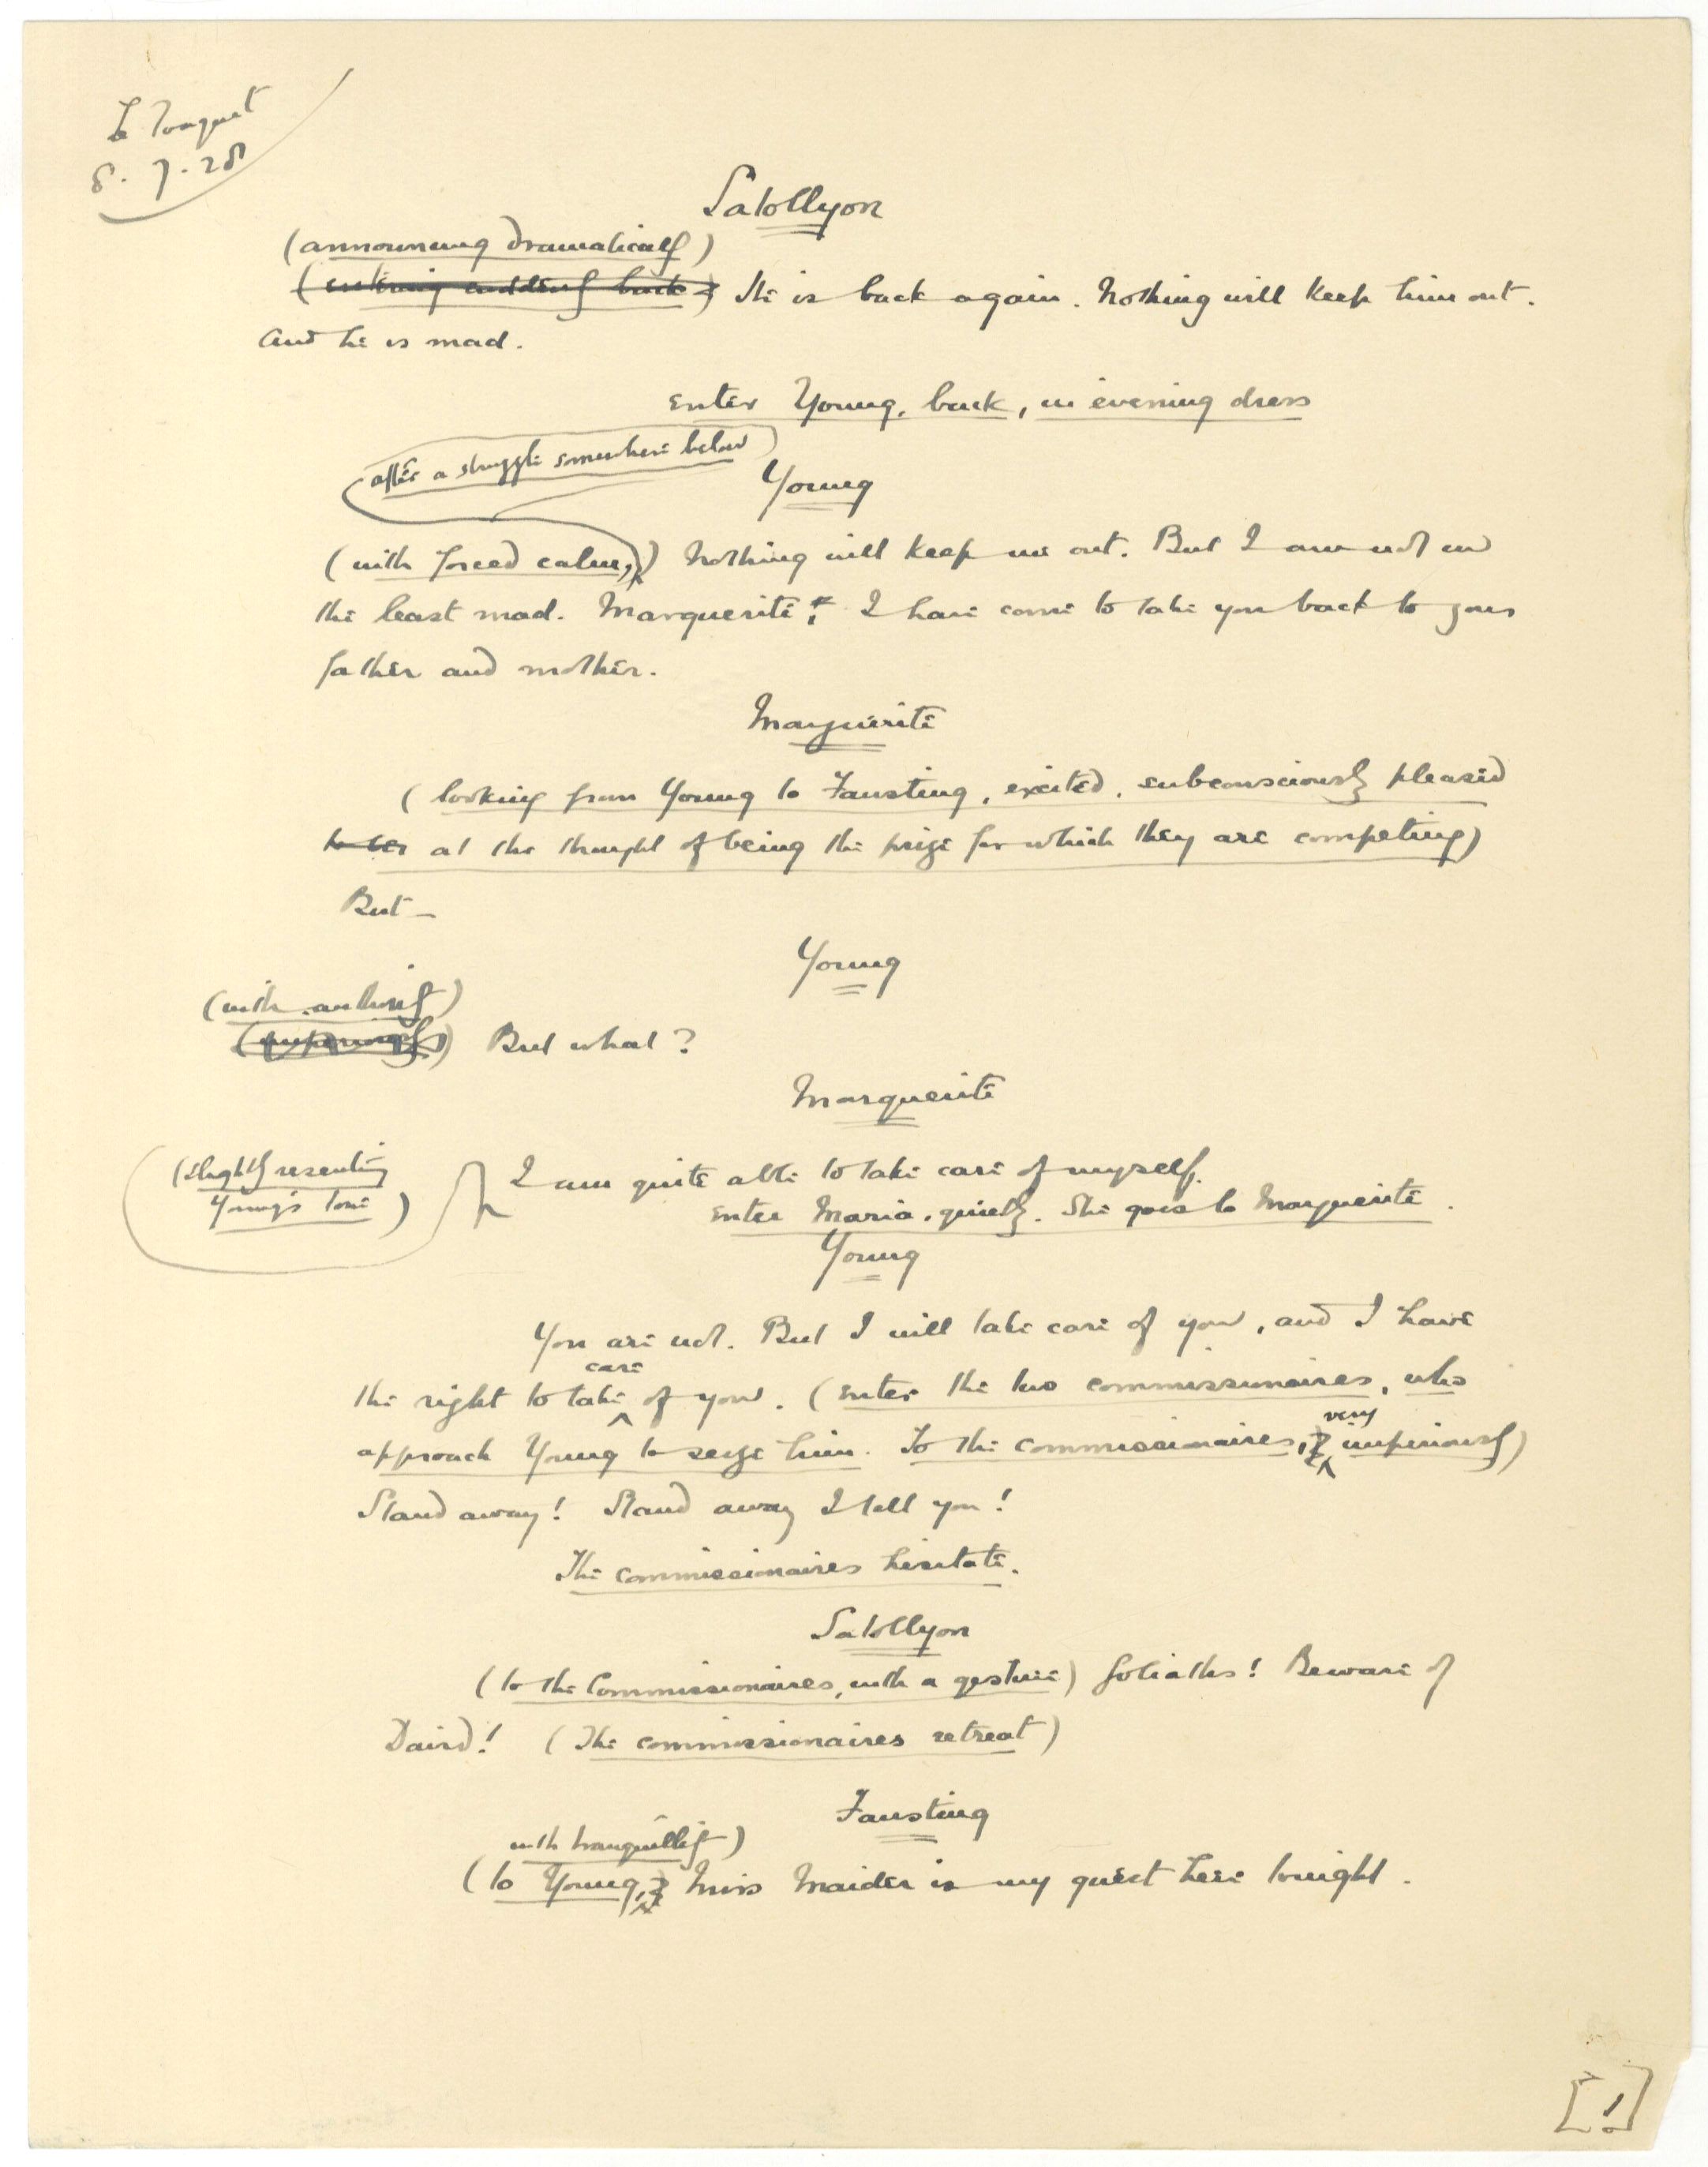 Le Touquet
8. 7. 28
Satollyon
(announcing dramatically)
(entering suddenly back) He is back again. Nothing will keep him out.
And he is mad.
Enter Young, back, in evening dress
after a struggle somewhere below
Young
(with forced calm,) Nothing will keep me out. But I am not in
the least mad. Marguerite, I have come to take you back to your
father and mother.
Marguerite
(looking from Young to Fausting, excited, subconsciously pleased
at the thought of being the prize for which they are competing)
But–
Young
(with authority)
(imperiously) But what?
Marguerite
(slightly resenting
Young's tone)
I am quite able to take care of myself.
Enter Maria, quietly. She goes to Marguerite.
Young
You are not. But I will take care of you, and I have
care
the right to take of you. (Enter the two commissionaires, who
very
approach Young to seize him. To the commissionaires, imperiously)
Stand away! Stand away I tell you!
The commissionaires hesitate.
Satollyon
(to the Commissionaires, with a gesture) Goliaths! Beware of
David! (The commissionaires retreat)
Fausting
with tranquillity)
(to Young, Miss Maider is my guest here tonight.
[1]